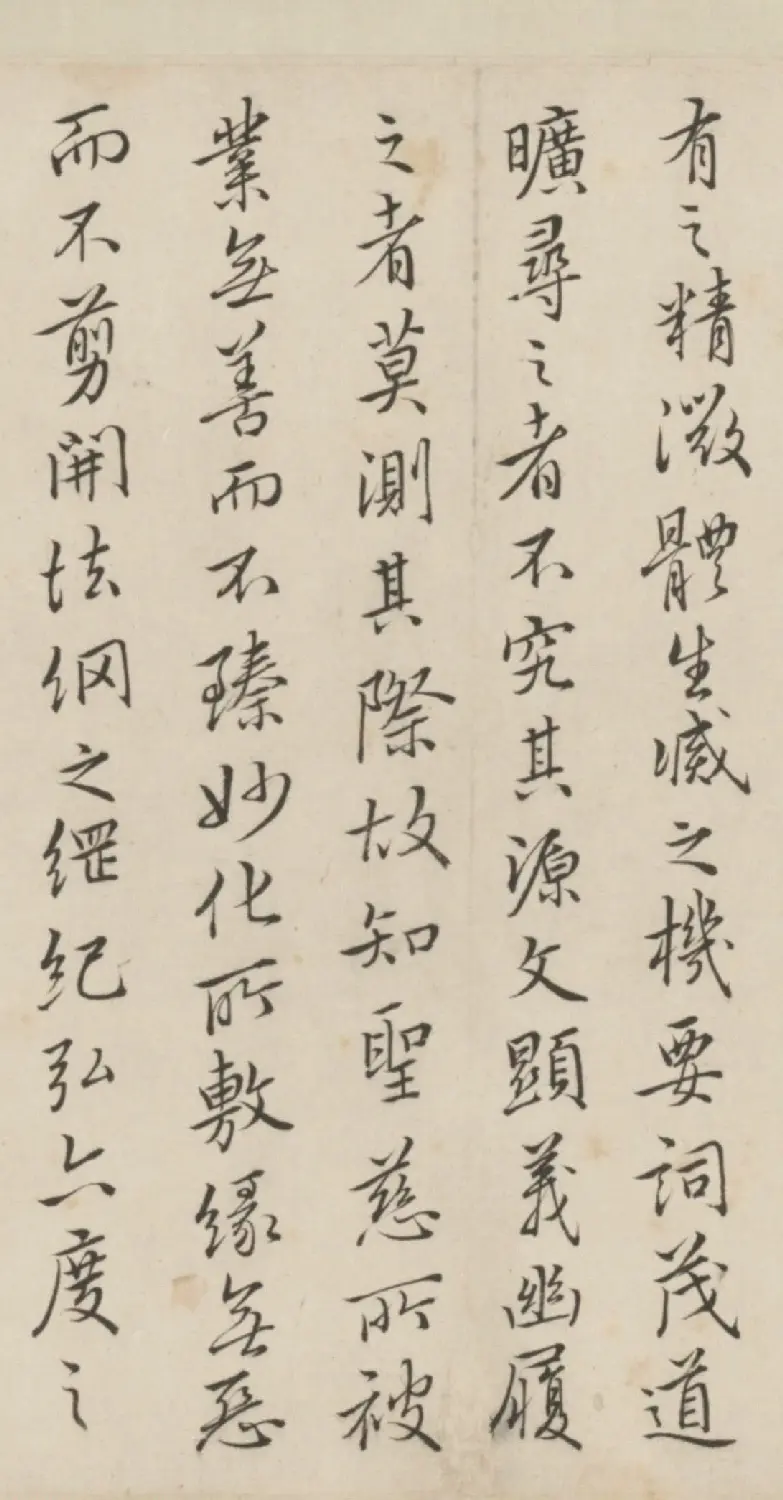 有之精微體生滅之機要詞茂道
曠尋之者不究其源文顯義幽履
之者莫測其際故知聖慈所被
業無善而不臻妙化所敷緣無惡
而不剪開法網之綱紀弘六度之